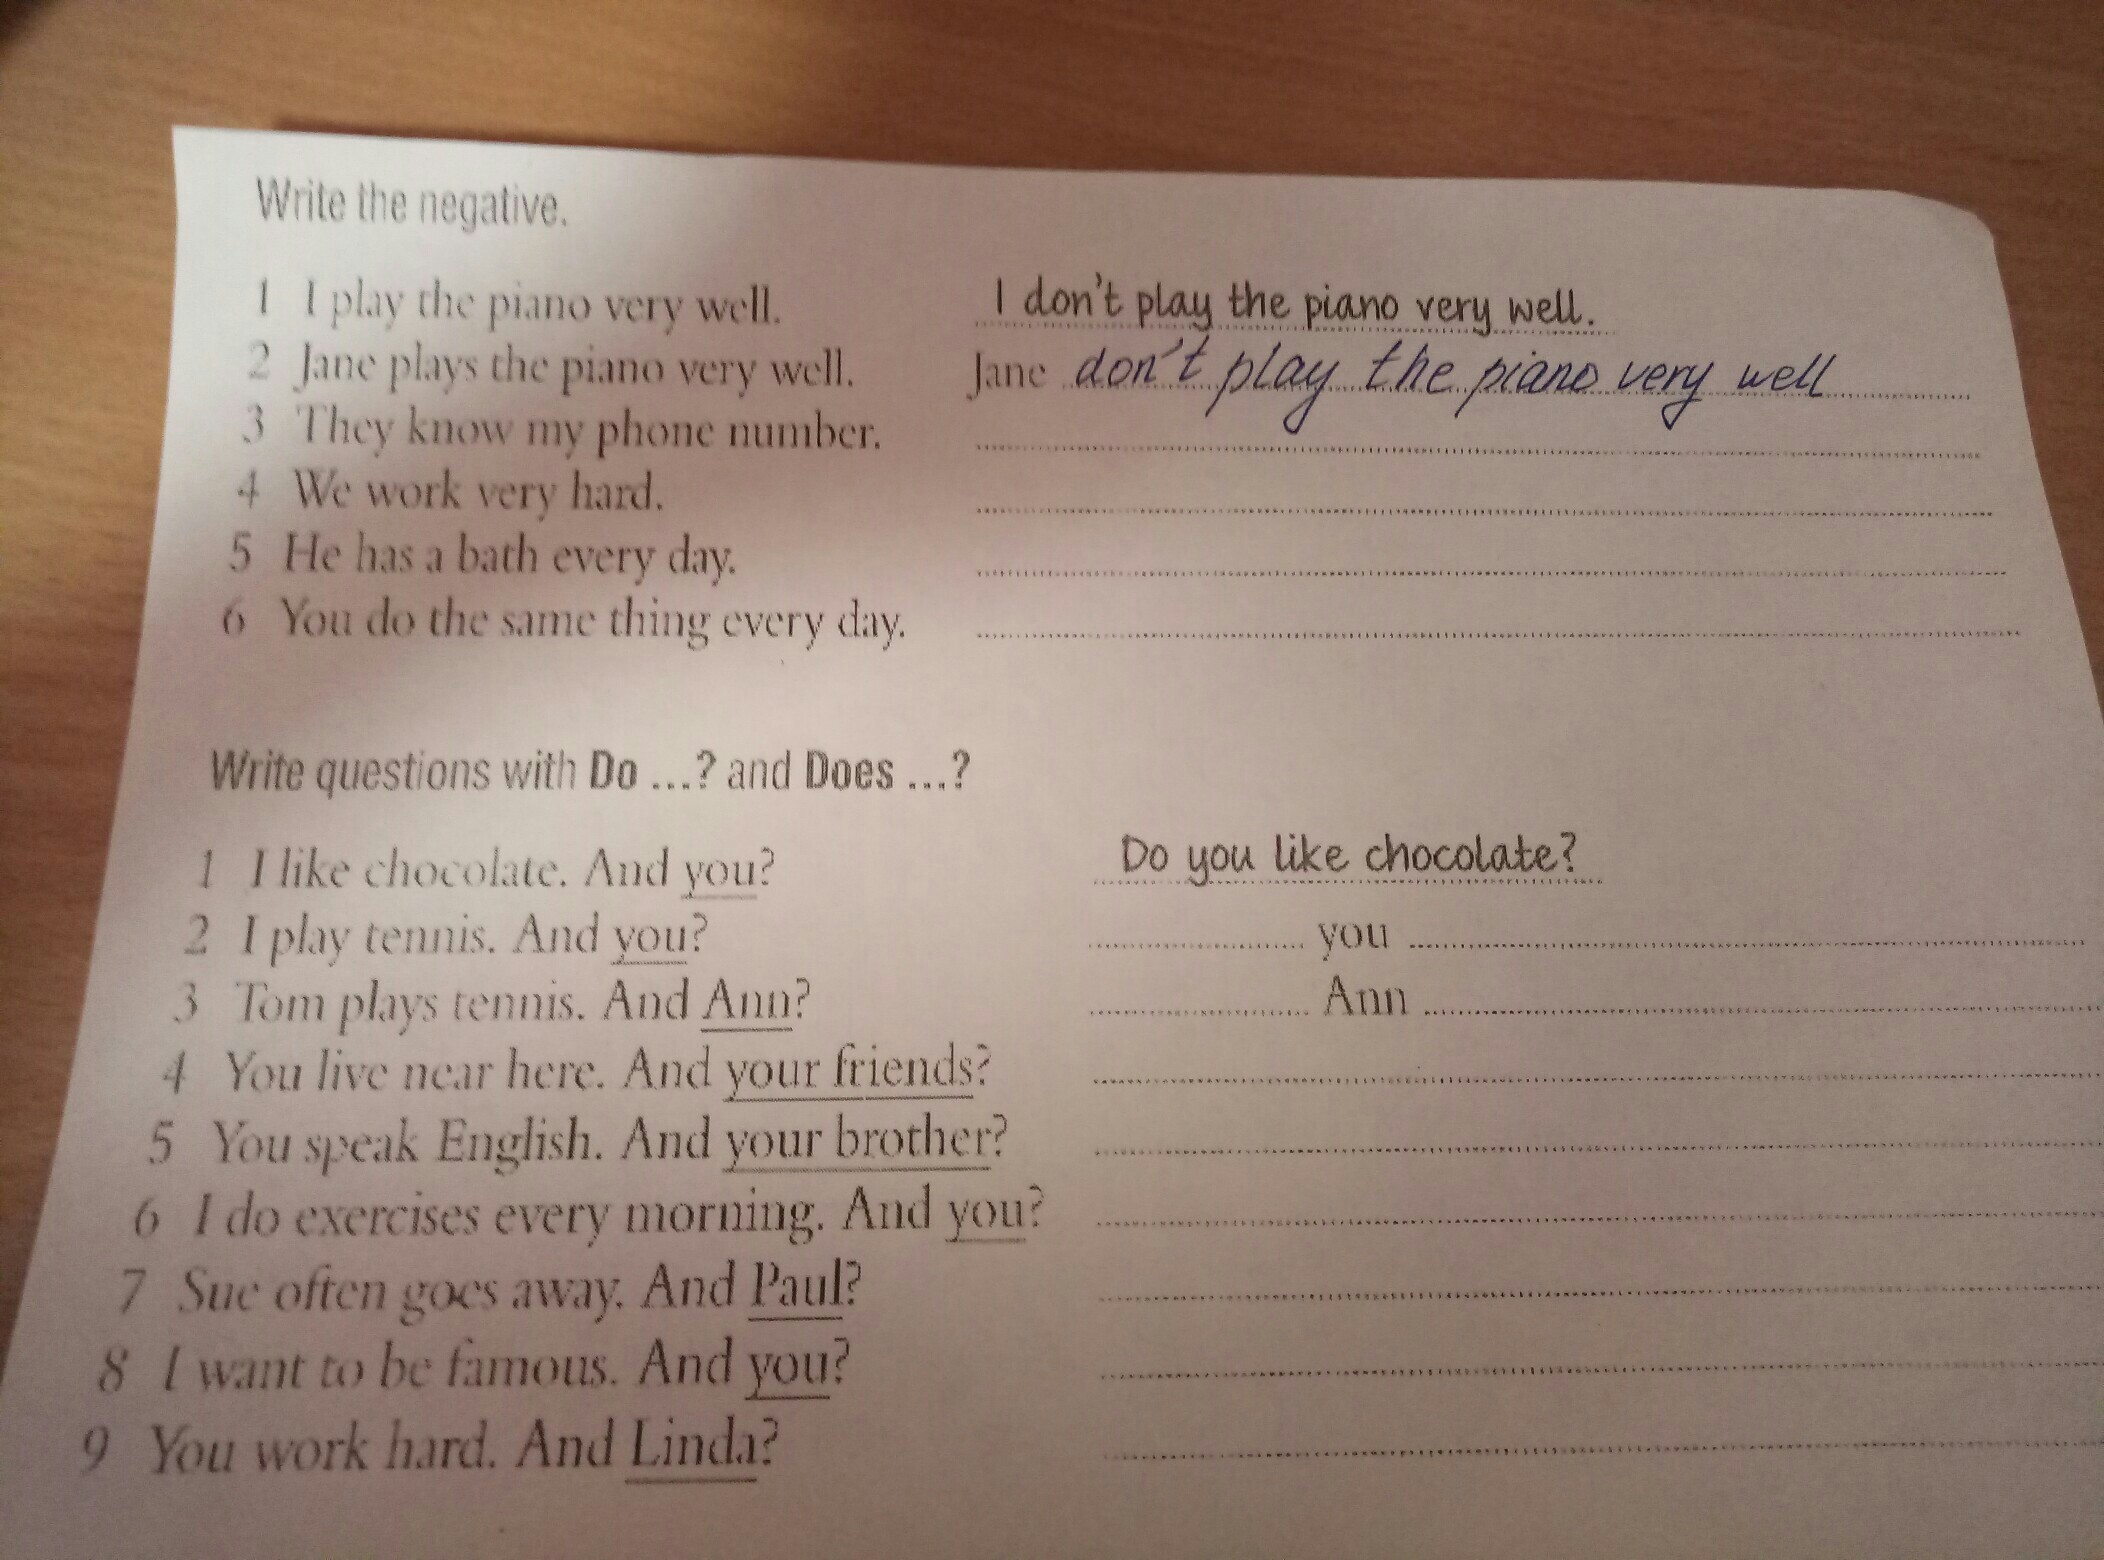 Write the negative.
1 I play the piano very well. I don't play the piano very well.
2 Jane plays the piano very well. Jane don't play the piano very well
3 They know my phone number.
4 We work very hard.
5 He has a bath every day.
6 You do the same thing every day.
Write questions with Do ...? and Does ...?
1 I like chocolate. And you? Do you like chocolate?
2 I play tennis. And you? you
3 Tom plays tennis. And Ann? Ann
4 You live near here. And your friends?
5 You speak English. And your brother?
6 I do exercises every morning. And you?
7 Sue often goes away. And Paul?
8 I want to be famous. And you?
9 You work hard. And Linda?